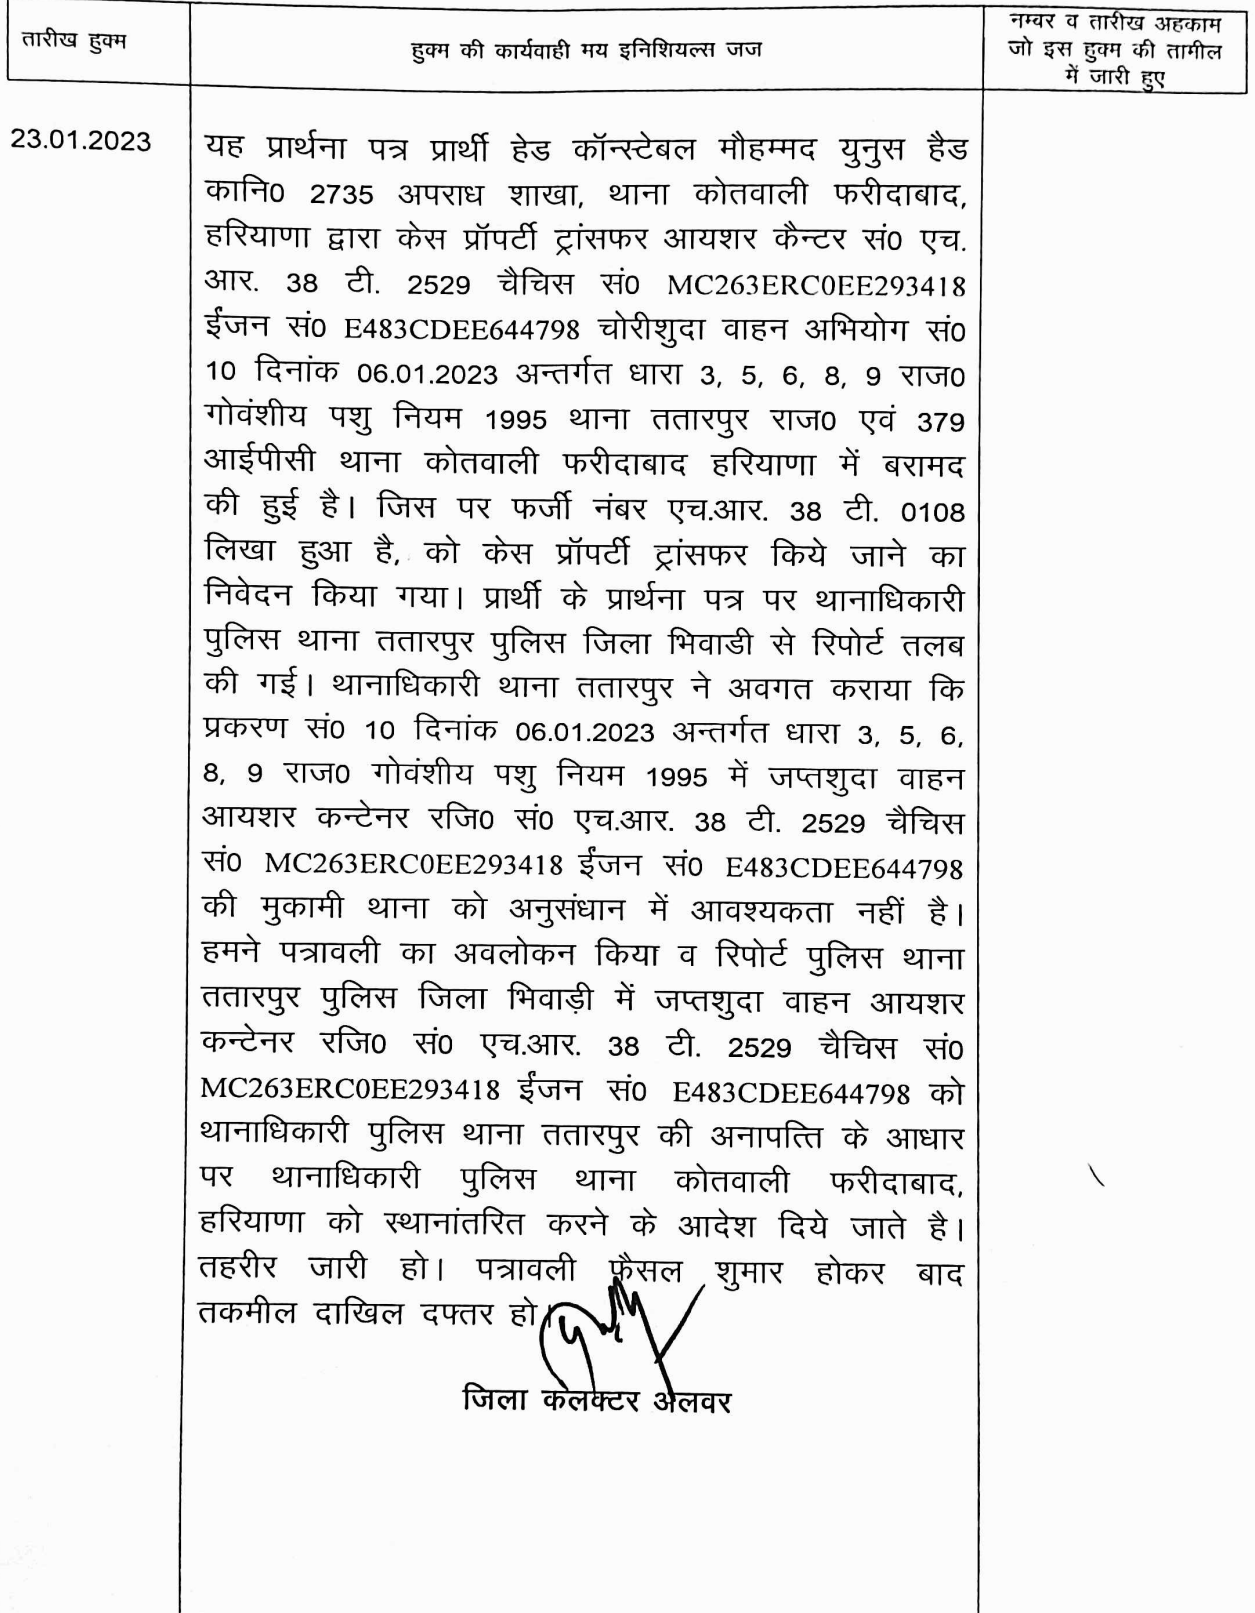 तारीख हुक्म
हुक्म की कार्यवाही मय इनिशियल्स जज
नम्बर व तारीख अहकाम
जो इस हुक्म की तामील
में जारी हुए
23.01.2023
यह प्रार्थना पत्र प्रार्थी हेड कॉन्स्टेबल मौहम्मद युनुस हैड
कानि0 2735 अपराध शाखा, थाना कोतवाली फरीदाबाद,
हरियाणा द्वारा केस प्रॉपर्टी ट्रांसफर आयशर कैन्टर सं0 एच.
आर. 38 टी. 2529 चैचिस सं0 MC263ERC0EE293418
ईंजन सं0 E483CDEE644798 चोरीशुदा वाहन अभियोग सं0
10 दिनांक 06.01.2023 अन्तर्गत धारा 3, 5, 6, 8, 9 राज0
गोवंशीय पशु नियम 1995 थाना ततारपुर राज0 एवं 379
आईपीसी थाना कोतवाली फरीदाबाद हरियाणा में बरामद
की हुई है। जिस पर फर्जी नंबर एच.आर. 38 टी. 0108
लिखा हुआ है, को केस प्रॉपर्टी ट्रांसफर किये जाने का
निवेदन किया गया। प्रार्थी के प्रार्थना पत्र पर थानाधिकारी
पुलिस थाना ततारपुर पुलिस जिला भिवाडी से रिपोर्ट तलब
की गई। थानाधिकारी थाना ततारपुर ने अवगत कराया कि
प्रकरण सं0 10 दिनांक 06.01.2023 अन्तर्गत धारा 3, 5, 6,
8, 9 राज0 गोवंशीय पशु नियम 1995 में जप्तशुदा वाहन
आयशर कन्टेनर रजि0 सं0 एच.आर. 38 टी. 2529 चैचिस
सं0 MC263ERC0EE293418 ईंजन सं0 E483CDEE644798
की मुकामी थाना को अनुसंधान में आवश्यकता नहीं है।
हमने पत्रावली का अवलोकन किया व रिपोर्ट पुलिस थाना
ततारपुर पुलिस जिला भिवाड़ी में जप्तशुदा वाहन आयशर
कन्टेनर रजि0 सं0 एच.आर. 38 टी. 2529 चैचिस सं0
MC263ERC0EE293418 ईंजन सं0 E483CDEE644798 को
थानाधिकारी पुलिस थाना ततारपुर की अनापत्ति के आधार
पर थानाधिकारी पुलिस थाना कोतवाली फरीदाबाद,
हरियाणा को स्थानांतरित करने के आदेश दिये जाते है।
तहरीर जारी हो। पत्रावली फैसल शुमार होकर बाद
तकमील दाखिल दफ्तर हो।
जिला कलक्टर अलवर